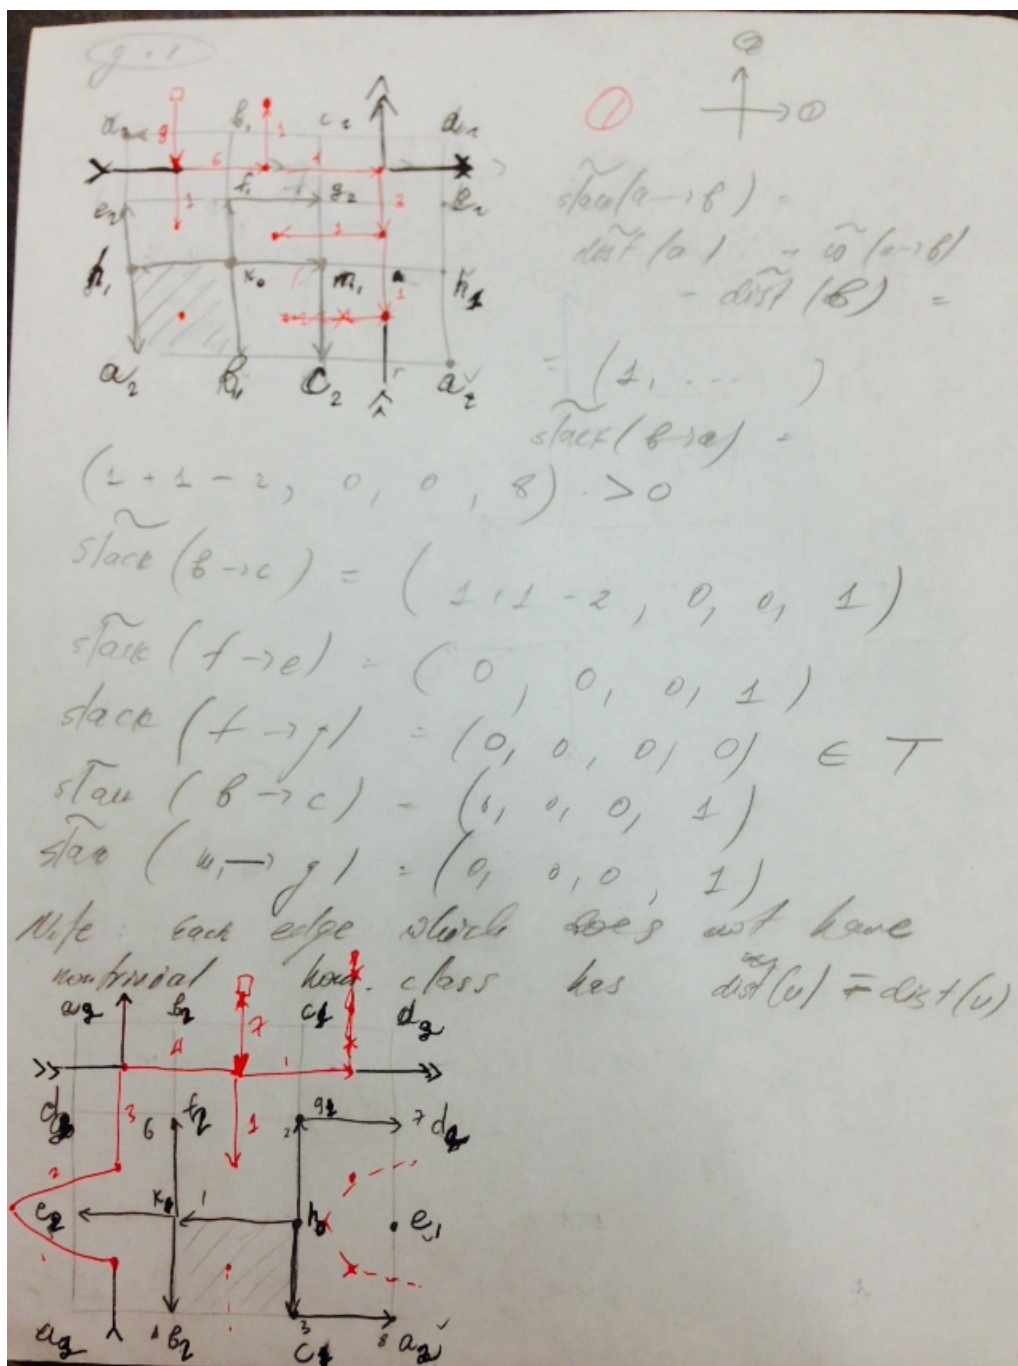 g = 1
②
①
①
d₂ b₁ c₂
8 1
6 1
f₁ g₂
e₂ 1 3
h₁ k₀ m₁ h₁
1
a₂ b₁ c₂ a₂
slack(a→b) =
dist(a) - ω(a→b)
- dist(b) =
= (1, ... )
slack(b→a) =
(1 + 1 - 2, 0, 0, 8) > 0
slack(b→c) = (1 + 1 - 2, 0, 0, 1)
slack(f→e) = (0, 0, 0, 1)
slack(f→g) = (0, 0, 0, 0) ∈ T
slack(b→c) = (0, 0, 0, 1)
slack(m₁→g) = (0, 0, 0, 1)
Note: each edge which does not have
nontrivial hom. class has dist(u) = dist(v)
a₂ b₂ c₁ d₂
4 7 1
3 6 f₂ 1 2 g₂ 7 d₂
2
e₂ k₁ 1 h₀ e₁
a₂ b₂ 3 c₁ 8 a₂